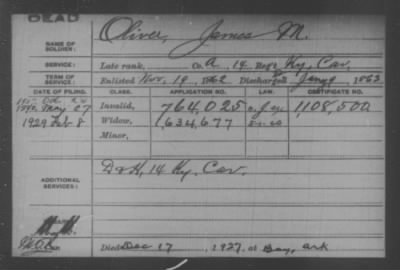 DEAD
NAME OF SOLDIER: Oliver, James M.
SERVICE: Late rank, Co. A, 14 Reg't Ky. Cav.
TERM OF SERVICE: Enlisted Nov. 19, 1862 Discharged Jany 9, 1863
DATE OF FILING. CLASS. APPLICATION NO. LAW. CERTIFICATE NO.
1890 May 27 Invalid, 764,025 1,108,500
1929 Feb 8 Widow, 1,634,677
Minor,
ADDITIONAL SERVICES: D & H, 14 Ky. Cav.
Died Dec 17, 1927, at Bay, Ark